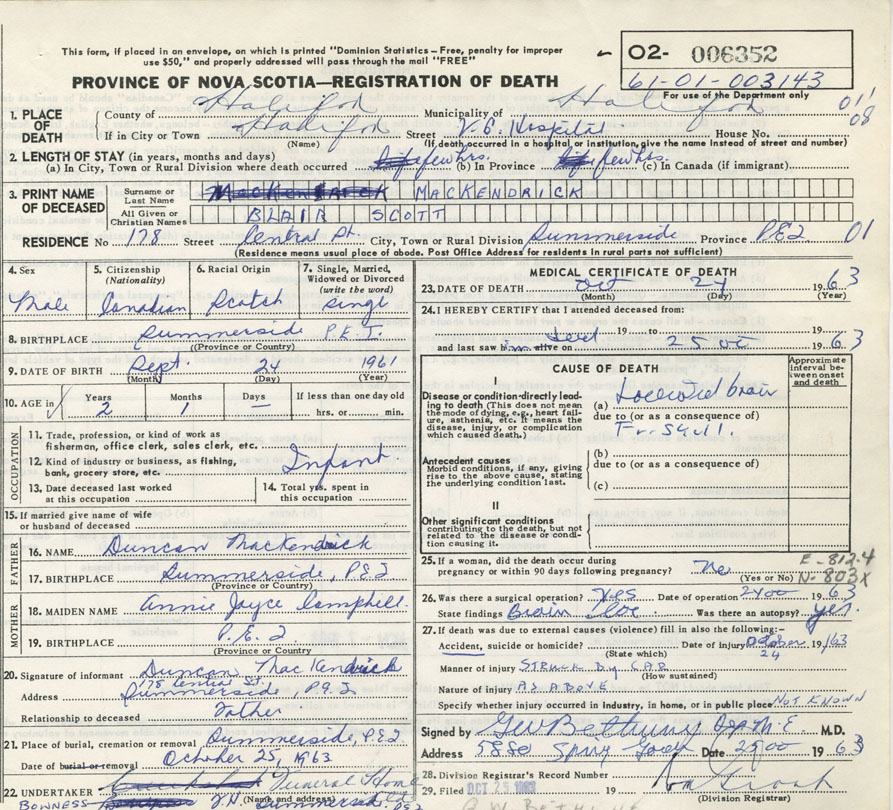 This form, if placed in an envelope, on which is printed "Dominion Statistics – Free, penalty for improper
use $50," and properly addressed will pass through the mail "FREE"
O2- 006352
61-01-003143
For use of the Department only
PROVINCE OF NOVA SCOTIA—REGISTRATION OF DEATH
1. PLACE OF DEATH
County of Halifax Municipality of Halifax 011
If in City or Town Halifax Street V.G. Hospital House No. 08
(Name) (If death occurred in a hospital or institution, give the name instead of street and number)
2. LENGTH OF STAY (in years, months and days)
(a) In City, Town or Rural Division where death occurred few hrs. (b) In Province few hrs. (c) In Canada (if immigrant)
3. PRINT NAME OF DECEASED
Surname or Last Name MACKENDRICK
All Given or Christian Names BLAIR SCOTT
RESIDENCE No 178 Street Central St. City, Town or Rural Division Summerside Province PEI 01
(Residence means usual place of abode. Post Office Address for residents in rural parts not sufficient)
4. Sex Male
5. Citizenship (Nationality) Canadian
6. Racial Origin Scotch
7. Single, Married, Widowed or Divorced (write the word) Single
8. BIRTHPLACE Summerside P.E.I.
(Province or Country)
9. DATE OF BIRTH Sept. 24 1961
(Month) (Day) (Year)
10. AGE in Years 2 Months 1 Days — If less than one day old hrs. or min.
OCCUPATION
11. Trade, profession, or kind of work as fisherman, office clerk, sales clerk, etc.
12. Kind of industry or business, as fishing, bank, grocery store, etc. Infant.
13. Date deceased last worked at this occupation
14. Total yrs. spent in this occupation
15. If married give name of wife or husband of deceased
FATHER
16. NAME Duncan MacKendrick
17. BIRTHPLACE Summerside, PEI
(Province or Country)
MOTHER
18. MAIDEN NAME Annie Joyce Campbell.
19. BIRTHPLACE P.E.I
(Province or Country)
20. Signature of informant Duncan MacKendrick
Address 178 Central St. Summerside, PEI
Relationship to deceased Father
21. Place of burial, cremation or removal Summerside, PEI
Date of burial or removal October 25, 1963
22. UNDERTAKER Funeral Home
(Name and address)
BOWNESS Summerside
MEDICAL CERTIFICATE OF DEATH
23. DATE OF DEATH Oct 24 1963
(Month) (Day) (Year)
24. I HEREBY CERTIFY that I attended deceased from:
19 to 19
and last saw him alive on 25 Oct 1963
CAUSE OF DEATH
Approximate interval between onset and death
I
Disease or condition directly leading to death (This does not mean the mode of dying, e.g., heart failure, asthenia, etc. It means the disease, injury, or complication which caused death.)
(a) Lacerated brain
due to (or as a consequence of)
Fr. Skull.
Antecedent causes
Morbid conditions, if any, giving rise to the above cause, stating the underlying condition last.
(b)
due to (or as a consequence of)
(c)
II
Other significant conditions contributing to the death, but not related to the disease or condition causing it.
25. If a woman, did the death occur during pregnancy or within 90 days following pregnancy? No
(Yes or No)
E-812.4
N-803X
26. Was there a surgical operation? Yes Date of operation 24 Oct 1963
State findings Brain Was there an autopsy? yes.
27. If death was due to external causes (violence) fill in also the following:—
Accident, suicide or homicide? Date of injury October 24 1963
(State which)
Manner of injury STRUCK By CAR
(How sustained)
Nature of injury AS ABOVE
Specify whether injury occurred in Industry, in home, or in public place NOT KNOWN
Signed by M.D.
Address 5880 Spring Garden Date 25 Oct 1963
28. Division Registrar's Record Number
29. Filed OCT 25 1963 19
(Division Registrar)